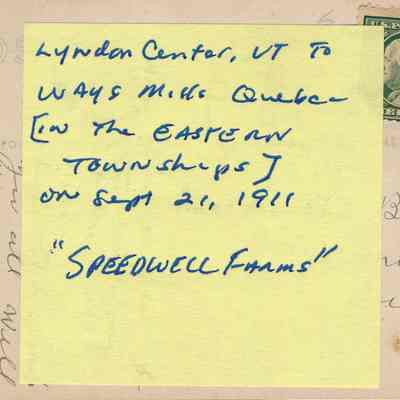 Lyndon Center, VT To
WAYS Mills Quebec
[in The EASTERN
TOWNShips]
ON Sept 21, 1911
"SPEEDWELL FARMS"
you all well